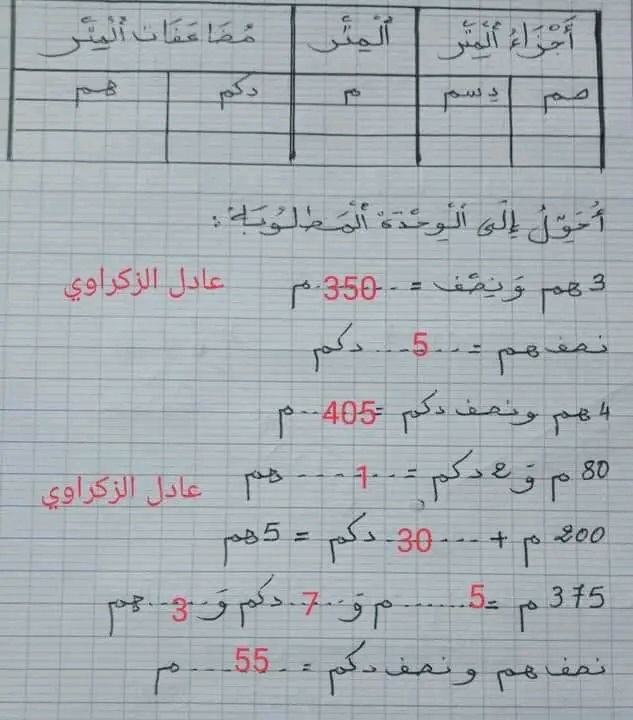 أَجْزَاءُ الْمِتْرِ الْمِتْرُ مُضَاعَفَاتُ الْمِتْرِ
صم دسم م دكم هم
أُحَوِّلُ إِلَى الْوِحْدَةِ الْمَطْلُوبَةِ:
3 هم وَنِصْف = 350 م
عادل الزكراوي
نصف هم = ...5... دكم
4 هم ونصف دكم = 405.. م
80 م وَ 2 دكم = ...1.... هم
عادل الزكراوي
200 م + ....30.. دكم = 5 هم
375 م = 5....... م وَ ..7... دكم وَ ..3... هم
نصف هم ونصف دكم = ..55.... م